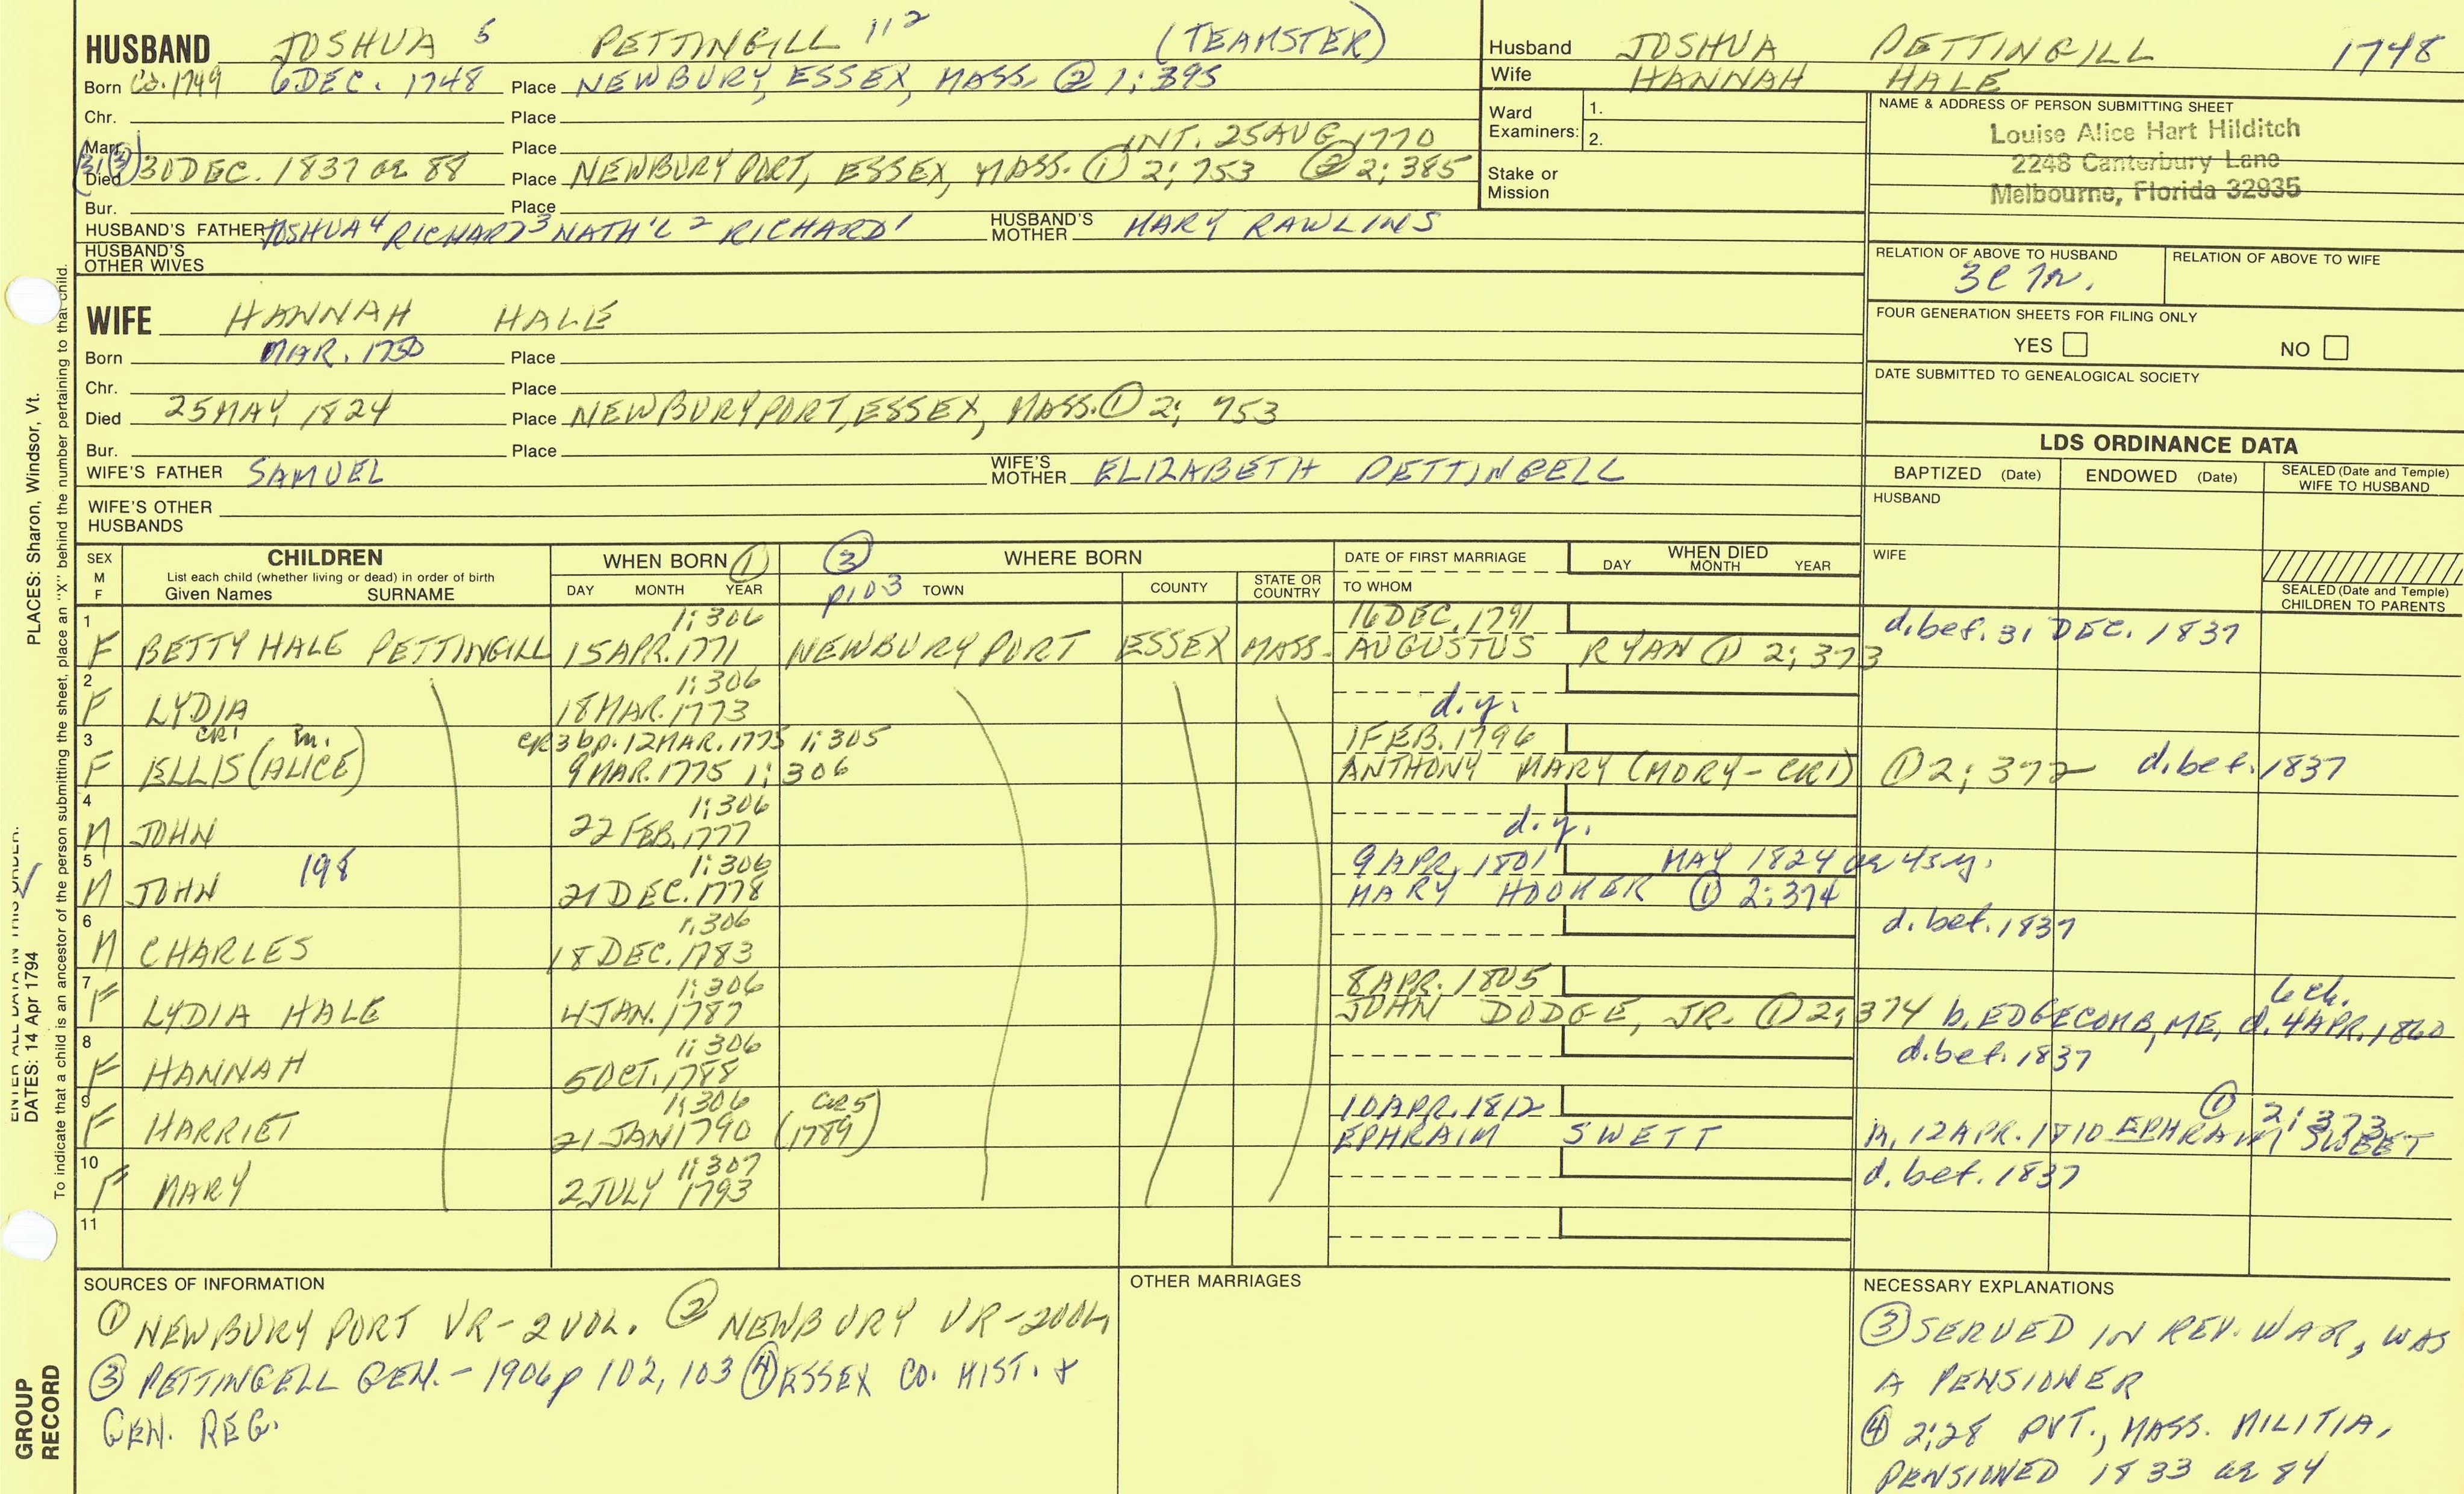 HUSBAND JOSHUA 5 PETTINGILL 112 (TEAMSTER)
Born Ca. 1749 6 DEC. 1748 Place NEWBURY, ESSEX, MASS. ② 1; 395
Chr. Place
INT. 25 AUG 1770
Marr. Place
(31 ③) Died 30 DEC. 1837 ae 88 Place NEWBURYPORT, ESSEX, MASS. ① 2; 753 ② 2; 385
Bur. Place
HUSBAND'S FATHER JOSHUA 4 RICHARD 3 NATH'L 2 RICHARD 1 HUSBAND'S MOTHER MARY RAWLINS
HUSBAND'S OTHER WIVES
WIFE HANNAH HALE
Born MAR. 1750 Place
Chr. Place
Died 25 MAY 1824 Place NEWBURYPORT, ESSEX, MASS. ① 2; 753
Bur. Place
WIFE'S FATHER SAMUEL WIFE'S MOTHER ELIZABETH PETTINGELL
WIFE'S OTHER HUSBANDS
Husband JOSHUA PETTINGILL 1748
Wife HANNAH HALE
Ward Examiners: 1.
2.
Stake or Mission
NAME & ADDRESS OF PERSON SUBMITTING SHEET
Louise Alice Hart Hilditch
2248 Canterbury Lane
Melbourne, Florida 32935
RELATION OF ABOVE TO HUSBAND RELATION OF ABOVE TO WIFE
3C
FOUR GENERATION SHEETS FOR FILING ONLY
YES NO
DATE SUBMITTED TO GENEALOGICAL SOCIETY
LDS ORDINANCE DATA
BAPTIZED (Date) ENDOWED (Date) SEALED (Date and Temple) WIFE TO HUSBAND
HUSBAND
WIFE
SEALED (Date and Temple) CHILDREN TO PARENTS
SEX M F
CHILDREN
List each child (whether living or dead) in order of birth
Given Names SURNAME
WHEN BORN ①
DAY MONTH YEAR
③ p103
WHERE BORN
TOWN COUNTY STATE OR COUNTRY
DATE OF FIRST MARRIAGE
TO WHOM
WHEN DIED
DAY MONTH YEAR
1 1; 306 16 DEC. 1791 d. bef. 31 DEC. 1837
F BETTY HALE PETTINGILL 15 APR. 1771 NEWBURYPORT ESSEX MASS. AUGUSTUS RYAN ① 2; 373
2 1; 306
F LYDIA 18 MAR. 1773 d.y.
3 CR1 m. CR3 bp. 12 MAR. 1775 1; 305 1 FEB. 1796
F ELLIS (ALICE) 9 MAR. 1775 1; 306 ANTHONY MARY (MORY-CR1) ① 2; 372 d. bef. 1837
4 1; 306
M JOHN 22 FEB. 1777 d.y.
5 198 1; 306 9 APR. 1801 MAY 1824 ae 45 y.
M JOHN 21 DEC. 1778 MARY HOOKER ① 2; 374
6 1; 306 d. bef. 1837
M CHARLES 18 DEC. 1783
7 1; 306 8 APR. 1805 6 ch.
F LYDIA HALE 4 JAN. 1787 JOHN DODGE, JR. ① 2; 374 b. EDGECOMB, ME, d. 4 APR. 1860
8 1; 306 d. bef. 1837
F HANNAH 5 OCT. 1788
9 1; 306 CR5 10 APR. 1812 ① 2; 373
F HARRIET 21 JAN 1790 (1789) EPHRAIM SWETT m. 12 APR. 1810 EPHRAIM SWEET
10 1; 307 d. bef. 1837
F MARY 2 JULY 1793
11
SOURCES OF INFORMATION
① NEWBURYPORT VR-2 VOL. ② NEWBURY VR-2 VOL
③ PETTINGELL GEN. - 1906 p 102, 103 ④ ESSEX CO. HIST. &
GEN. REG.
OTHER MARRIAGES
NECESSARY EXPLANATIONS
③ SERVED IN REV. WAR, WAS
A PENSIONER
④ 2; 28 PVT., MASS. MILITIA,
PENSIONED 1833 ae 84
To indicate that a child is an ancestor of the person submitting the sheet, place an "X" behind the number pertaining to that child.
PLACES: Sharon, Windsor, Vt.
ENTER ALL DATA IN THIS ORDER:
DATES: 14 Apr 1794
GROUP RECORD